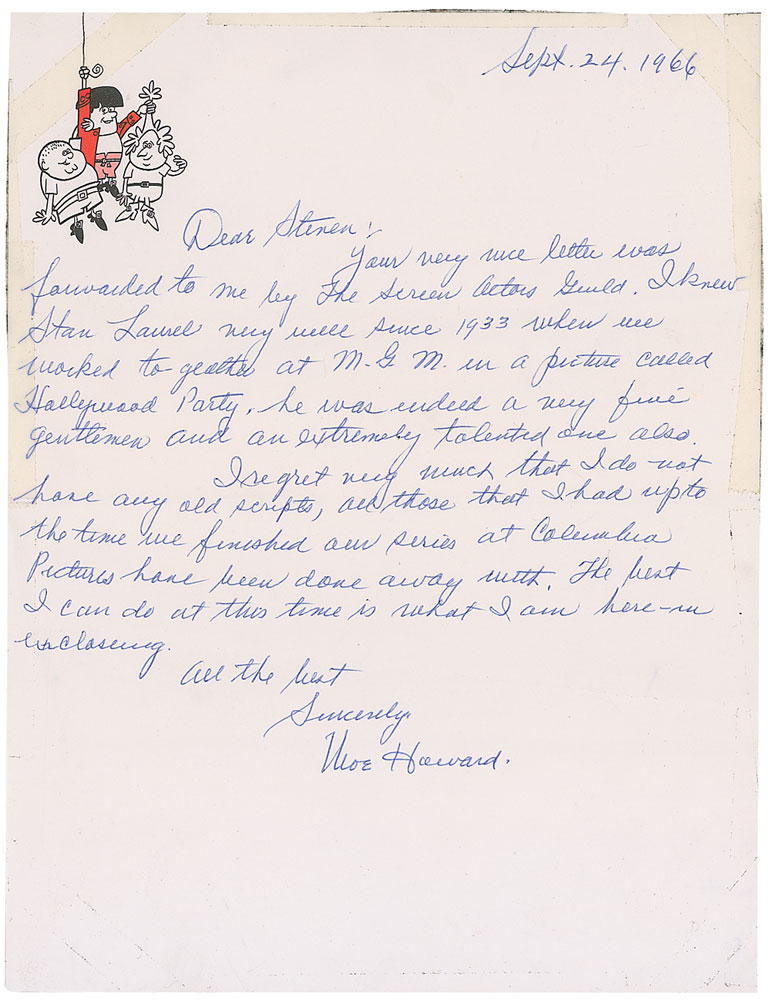 Sept. 24. 1966
Dear Steven:
Your very nice letter was
forwarded to me by The Screen Actors Guild. I knew
Stan Laurel very well since 1933 when we
worked to-geather at M.G.M. in a picture called
Hollywood Party. he was indeed a very fine
gentlemen and an extremely talented one also.
I regret very much that I do not
have any old scripts, all those that I had up to
the time we finished our series at Columbia
Pictures have been done away with. The best
I can do at this time is what I am here-in
enclosing.
All the best
Sincerely
Moe Howard.